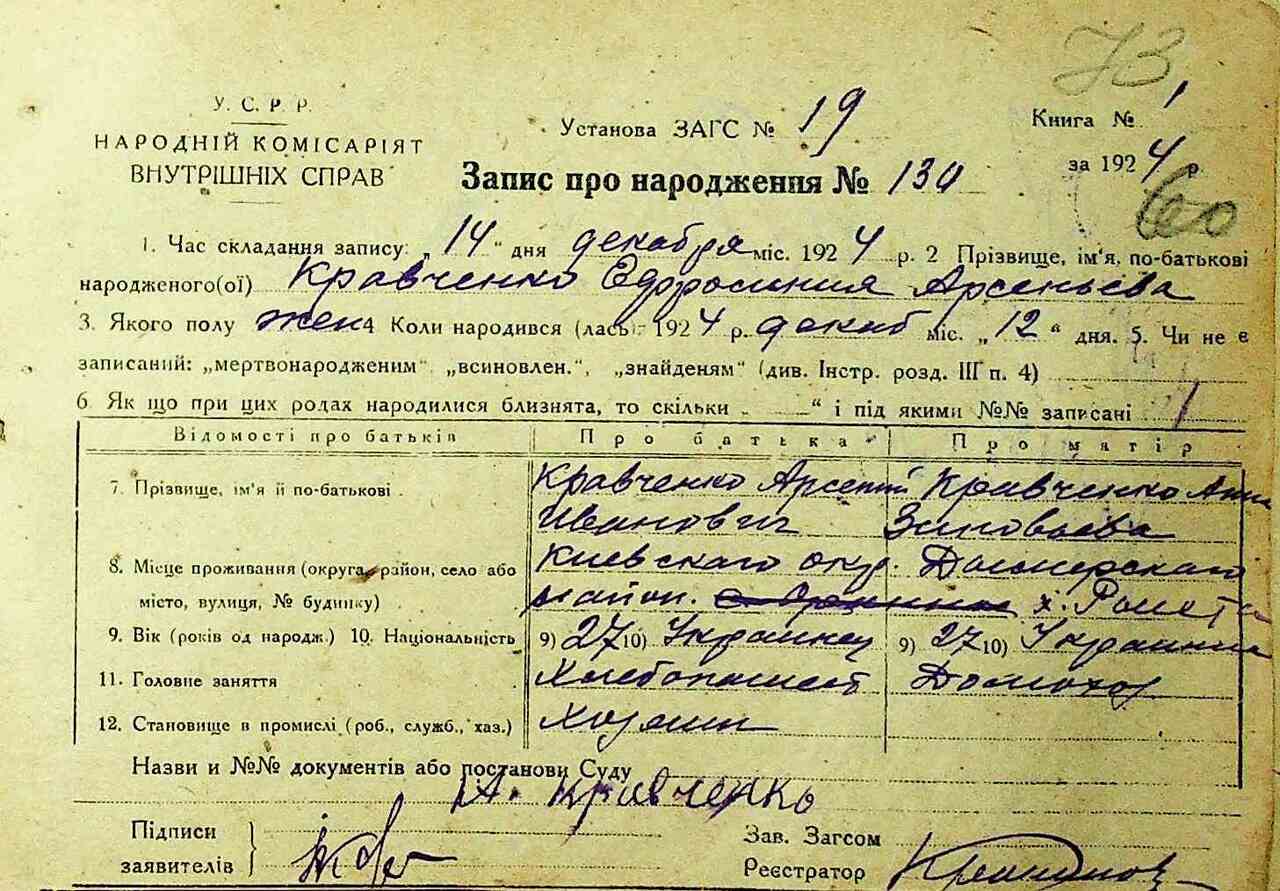 73
У. С. Р. Р.
НАРОДНІЙ КОМІСАРІЯТ
ВНУТРІШНІХ СПРАВ
Установа ЗАГС № 19
Книга № 1
за 1924 р
Запис про народження № 130
60
1. Час складання запису: „14“ дня декабря міс. 1924 р. 2 Прізвище, ім'я, по-батькові
народженого(ої) Кравченко Ефросиния Арсеньева
3. Якого полу жен 4 Коли народився (лась) 1924 р. декаб міс. „12“ дня. 5. Чи не є
записаний: „мертвонародженим“ „всиновлен.“, „знайденям“ (див. Інстр. розд. III п. 4)
6 Як що при цих родах народилися близнята, то скільки „ “ і під якими №№ записані
Відомості про батьків Про батька Про матір
7. Прізвище, ім'я й по-батькові Кравченко Арсений Кравченко Анна
Иванович Зиновьева
8. Місце проживання (округа, район, село або Киевскаго окр. Дымерскаго
місто, вулиця, № будинку) район. х.
9. Вік (років од народж.) 10. Національність 9) 27 10) Украинец 9) 27 10) Украинка
11. Головне заняття Хлебопашест Домохоз
12. Становище в промислі (роб., служб., хаз.) Хозяин
Назви и №№ документів або постанови Суду
А. Кравченко
Підписи
заявителів
Зав. Загсом
Реєстратор